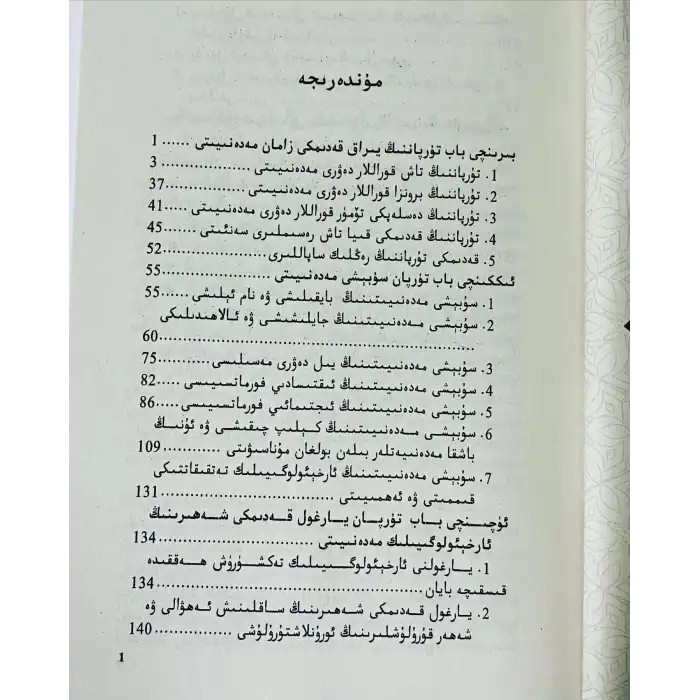 مۇندەرىجە
بىرىنچى باب تۇرپاننىڭ يىراق قەدىمكى زامان مەدەنىيىتى ...... 1
1. تۇرپاننىڭ تاش قوراللار دەۋرى مەدەنىيىتى .................... 3
2. تۇرپاننىڭ برونزا قوراللار دەۋرى مەدەنىيىتى ................ 37
3. تۇرپاننىڭ دەسلەپكى تۆمۈر قوراللار دەۋرى مەدەنىيىتى ..... 41
4. تۇرپاننىڭ قەدىمكى قىيا تاش رەسىملىرى سەنئىتى ........ 45
5. قەدىمكى تۇرپاننىڭ رەڭلىك ساپاللىرى ..................... 52
ئىككىنچى باب تۇرپان سۇبېشى مەدەنىيىتى ................... 55
1. سۇبېشى مەدەنىيىتىنىڭ بايقىلىشى ۋە نام ئېلىشى ...... 55
2. سۇبېشى مەدەنىيىتىنىڭ جايلىشىشى ۋە ئالاھىدىلىكى
................................................................ 60
3. سۇبېشى مەدەنىيىتىنىڭ يىل دەۋرى مەسىلىسى ........... 75
4. سۇبېشى مەدەنىيىتىنىڭ ئىقتىسادىي فورماتسىيىسى ..... 82
5. سۇبېشى مەدەنىيىتىنىڭ ئىجتىمائىي فورماتسىيىسى ..... 86
6. سۇبېشى مەدەنىيىتىنىڭ كېلىپ چىقىشى ۋە ئۇنىڭ
باشقا مەدەنىيەتلەر بىلەن بولغان مۇناسىۋىتى ................ 109
7. سۇبېشى مەدەنىيىتىنىڭ ئارخېئولوگىيىلىك تەتقىقاتتىكى
قىممىتى ۋە ئەھمىيىتى .................................. 131
ئۈچىنچى باب تۇرپان يارغول قەدىمكى شەھىرىنىڭ
ئارخېئولوگىيىلىك مەدەنىيىتى .............................. 134
1. يارغولنى ئارخېئولوگىيىلىك تەكشۈرۈش ھەققىدە
قىسقىچە بايان .............................................. 134
2. يارغول قەدىمكى شەھىرىنىڭ ساقلىنىش ئەھۋالى ۋە
شەھەر قۇرۇلۇشلىرىنىڭ ئورۇنلاشتۇرۇلۇشى ................ 140
1